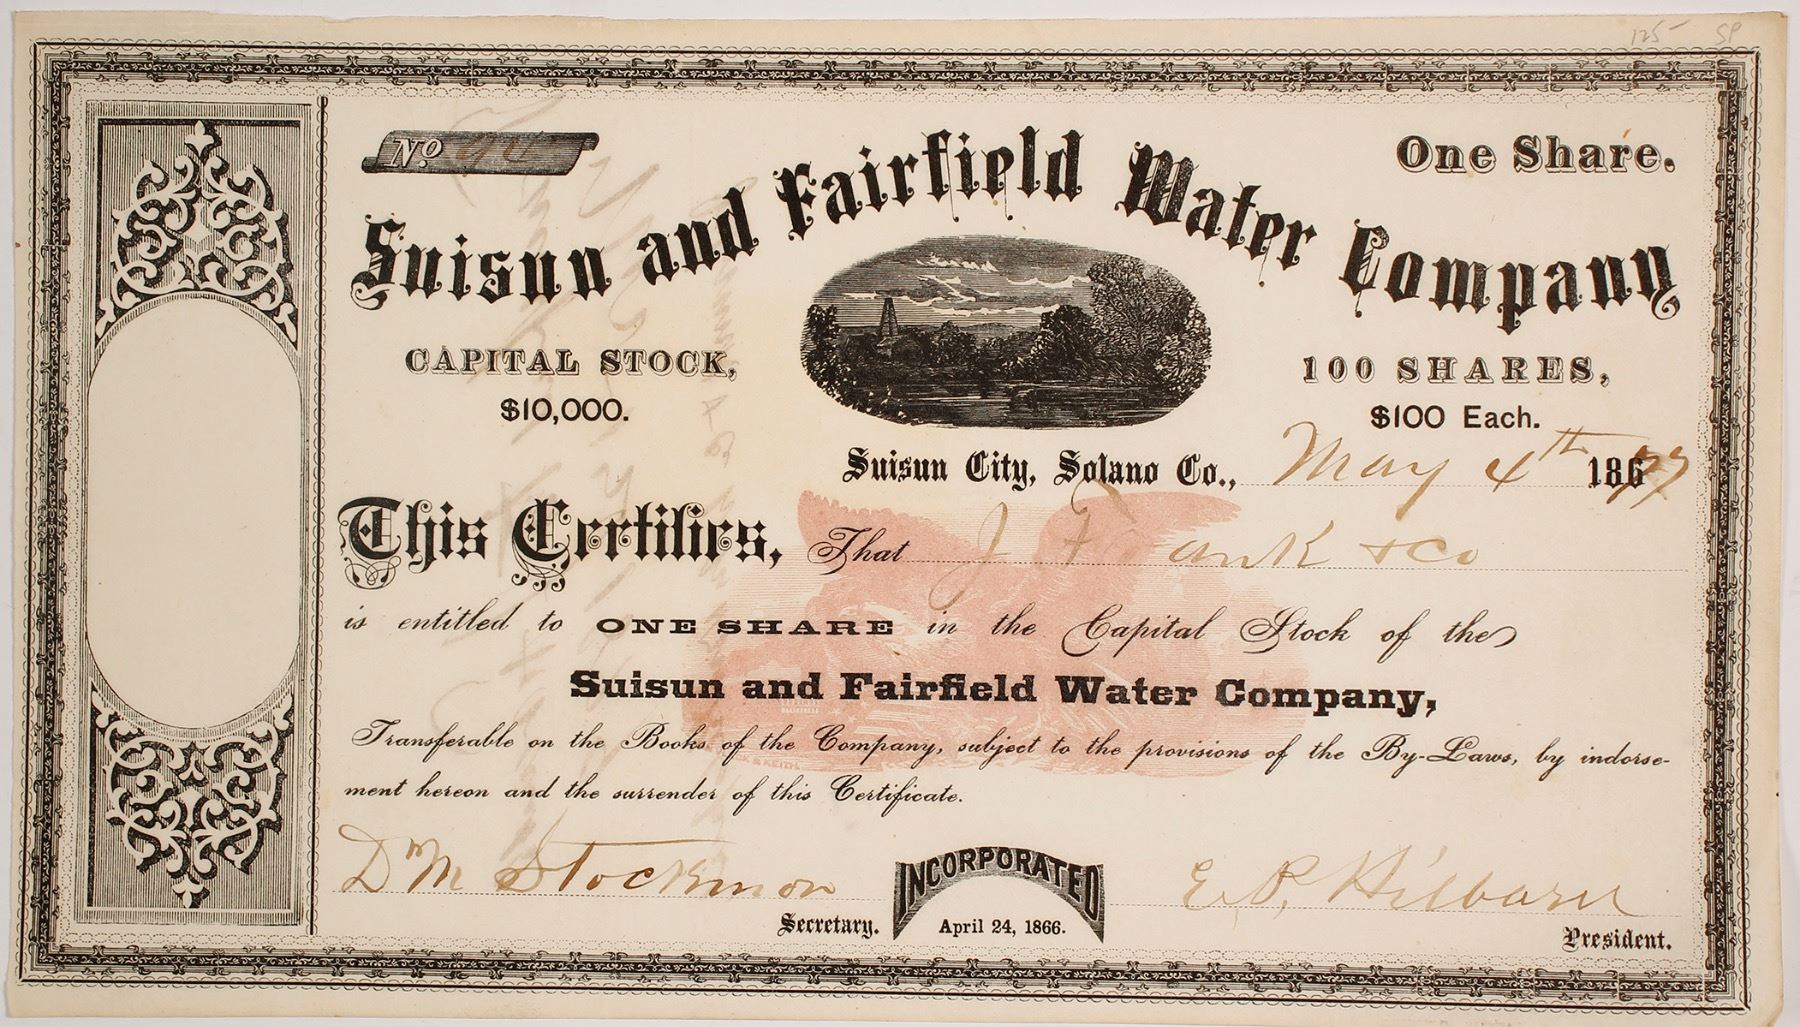 125- SP
No. 94
One Share.
Suisun and Fairfield Water Company
CAPITAL STOCK,
$10,000.
100 SHARES,
$100 Each.
Suisun City, Solano Co., May 4th 1877
This Certifies, That J Frank & Co
is entitled to ONE SHARE in the Capital Stock of the
Suisun and Fairfield Water Company,
Transferable on the Books of the Company, subject to the provisions of the By-Laws, by indorse-
ment hereon and the surrender of this Certificate.
D M Stockmon
Secretary.
INCORPORATED
April 24, 1866.
E. P. Hilborn
President.